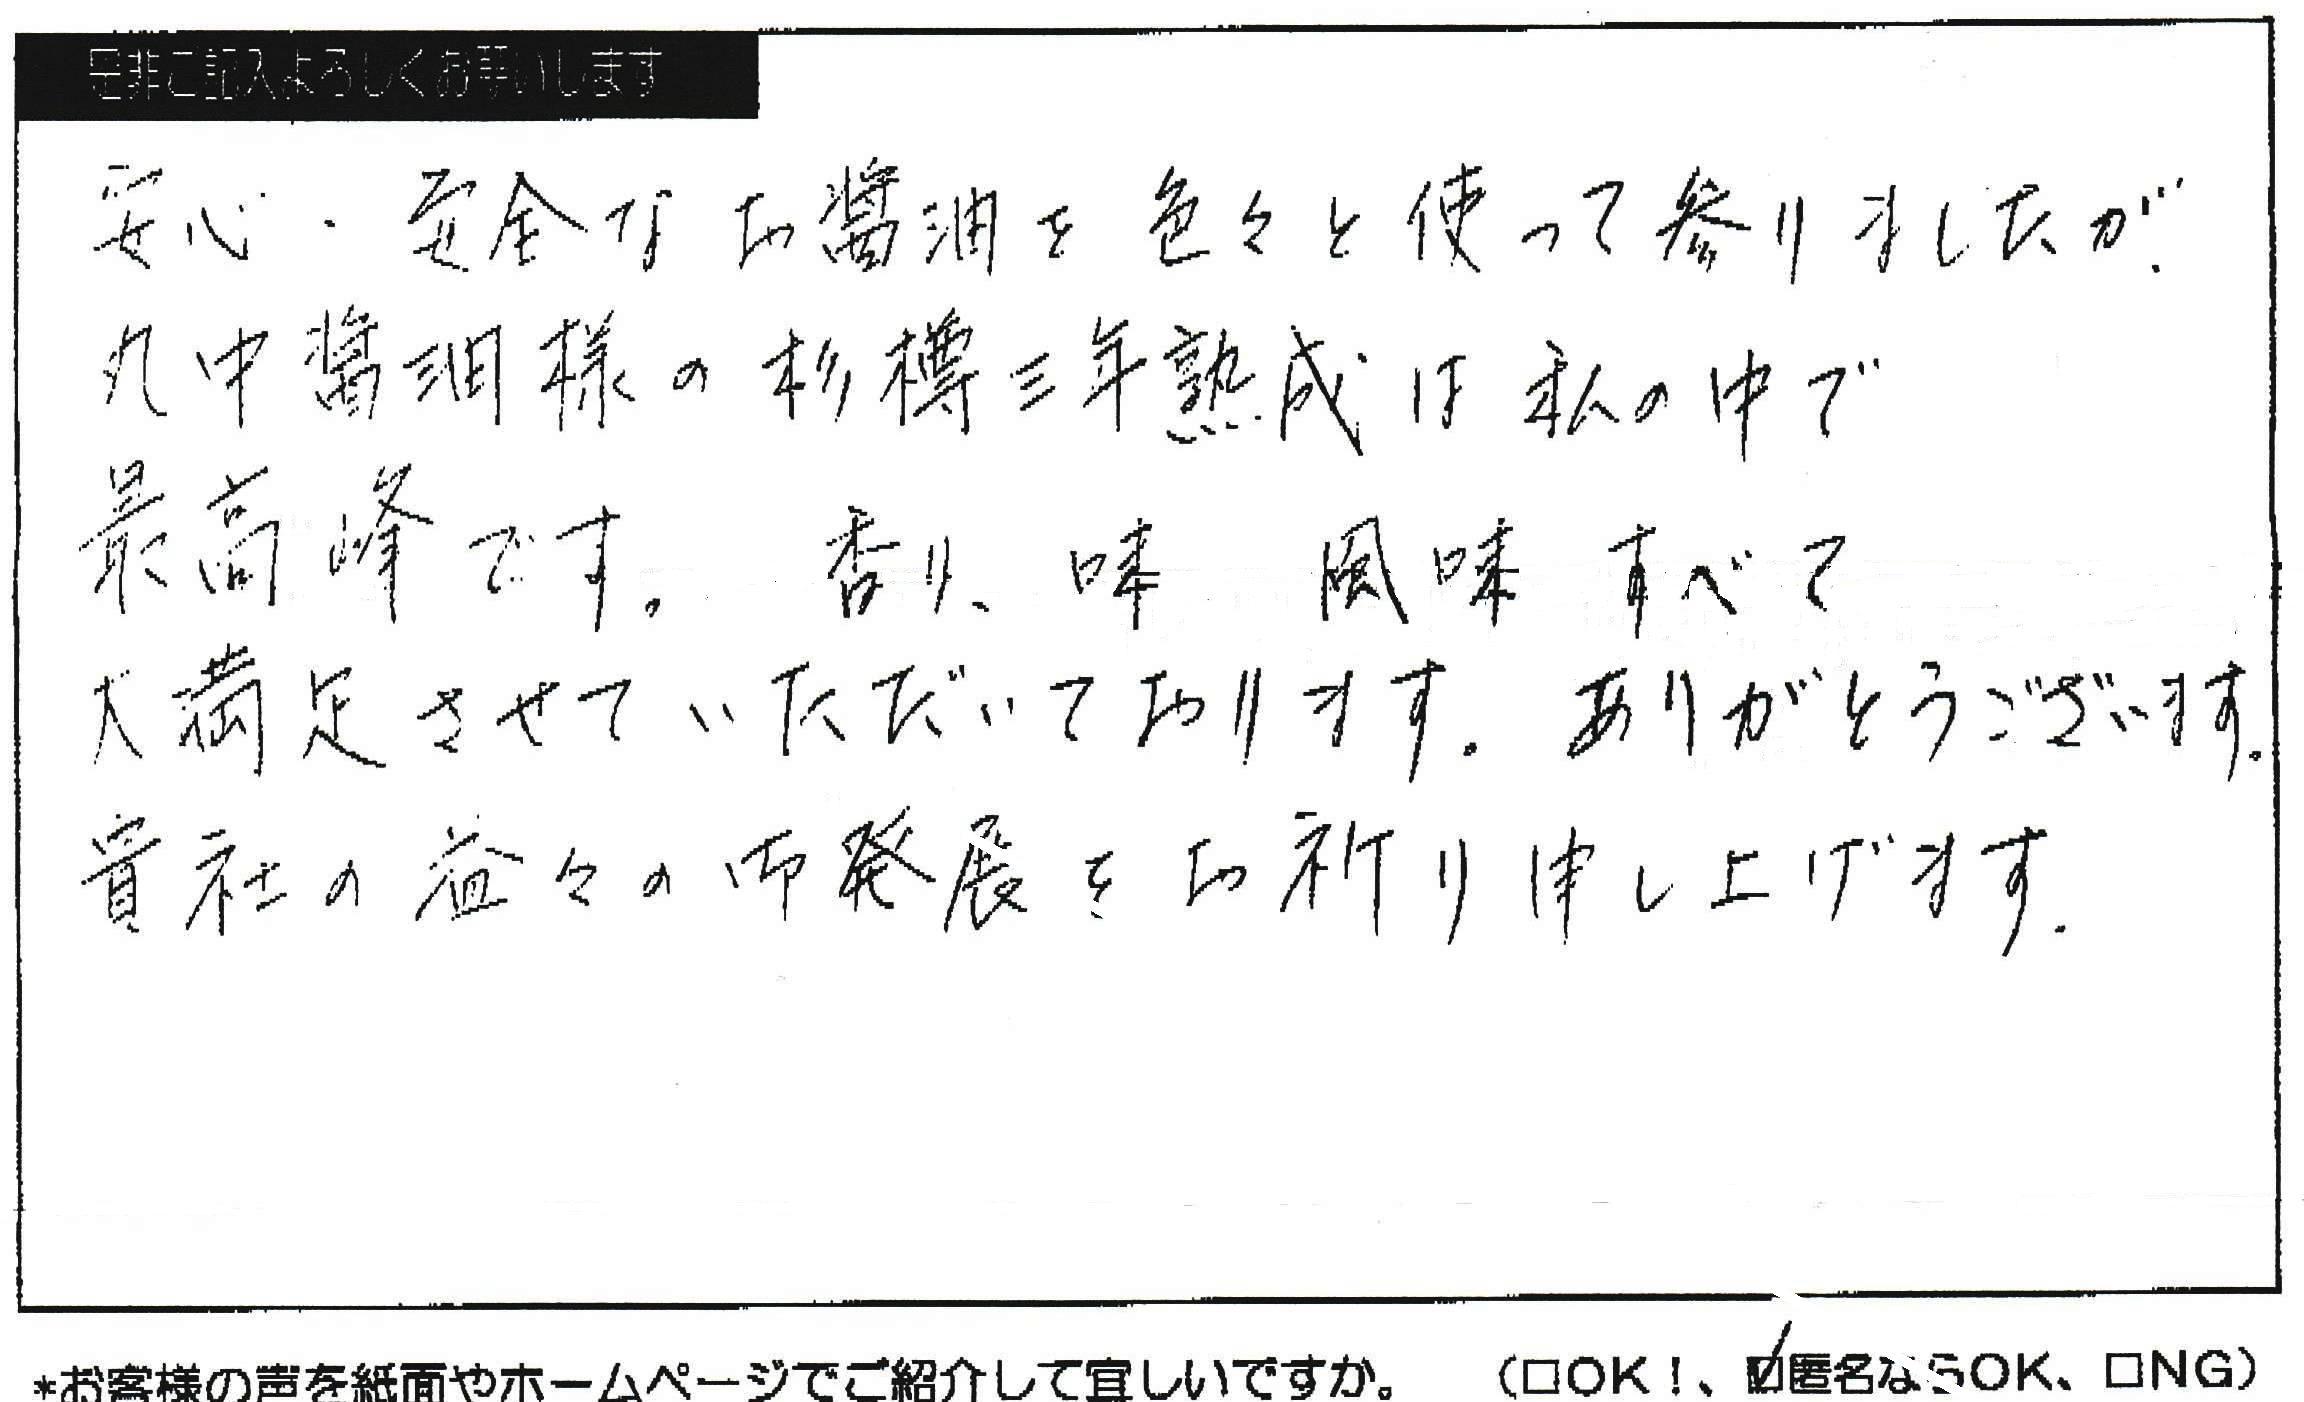 是非ご記入よろしくお願いします
安心・安全なお醤油を色々と使って参りましたが、
丸中醤油様の杉樽三年熟成は私の中で
最高峰です。 香り、味 風味 すべて
大満足させていただいております。ありがとうございます。
貴社の益々の御発展をお祈り申し上げます。
*お客様の声を紙面やホームページでご紹介して宜しいですか。 (□OK!、☑匿名ならOK、□NG)